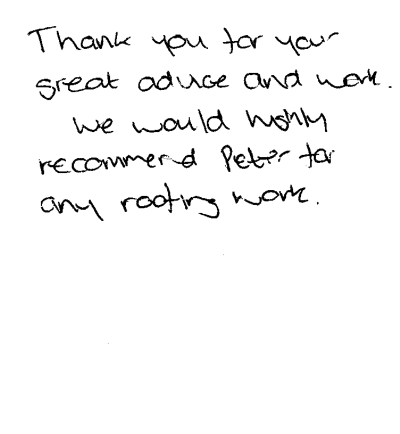 Thank you for your
great advice and work.
We would highly
recommend Peter for
any roofing work.